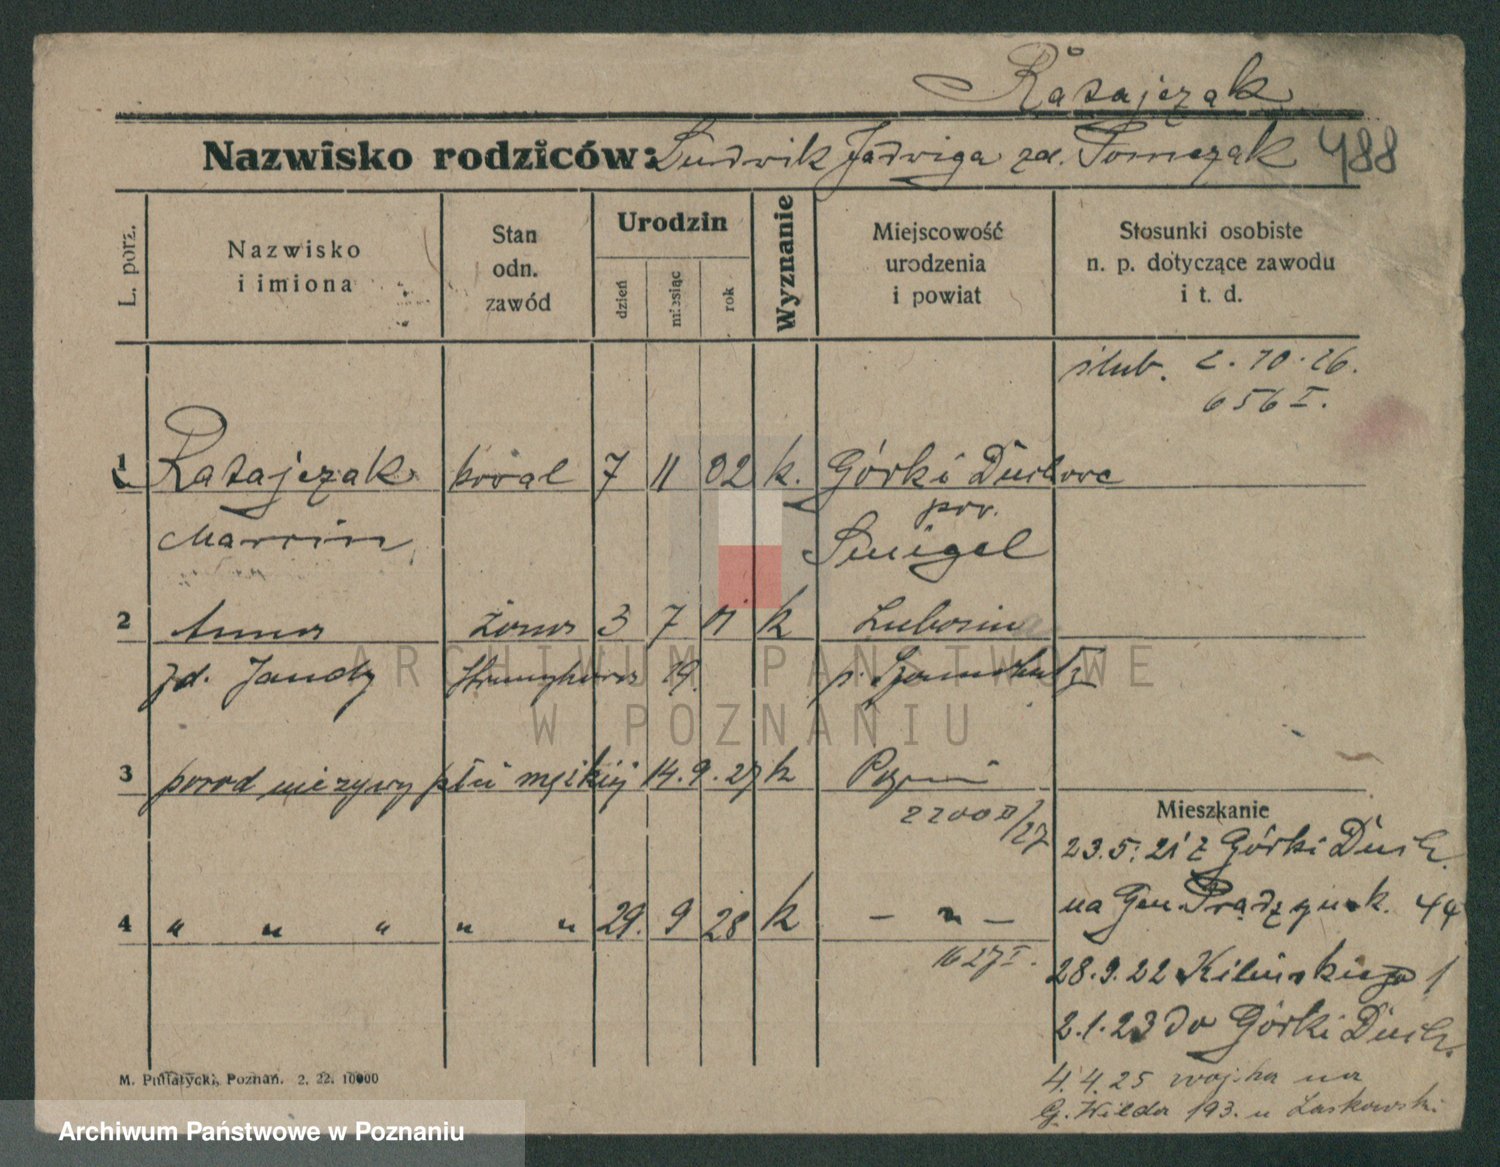 Ratajczak
Nazwisko rodziców: Ludwik Jadwiga zd. Tomczak 488
L. porz.
Nazwisko
i imiona
Stan
odn.
zawód
Urodzin
dzień
miesiąc
rok
Wyznanie
Miejscowość
urodzenia
i powiat
Stosunki osobiste
n. p. dotyczące zawodu
i t. d.
ślub. 2.10.26.
656 I.
1 Ratajczak kowal 7 11 02 k. Górki Duchowe
pow.
Marcin Śmigel
2 Anna żona 3 7 01 k Lubosina
zd. Jandy 19. p. Szamotuły
ARCHIWUM PAŃSTWOWE
W POZNANIU
3 porod nieżywy płci męskiej 14. 9. 27 k Pozn
2200 II/27
Mieszkanie
23.5.21 z Górki Duch.
na Gen Prądzyńsk. 44
4 " " " " " 29. 9 28 k — " —
1627 I.
28.9.22 Kilińskiego 1
2.1.23 do Górki Duch.
4.4.25 wojska na
G. Wilda 193. u Laskowski.
M. Putiatycki, Poznań. 2. 22. 10000
Archiwum Państwowe w Poznaniu